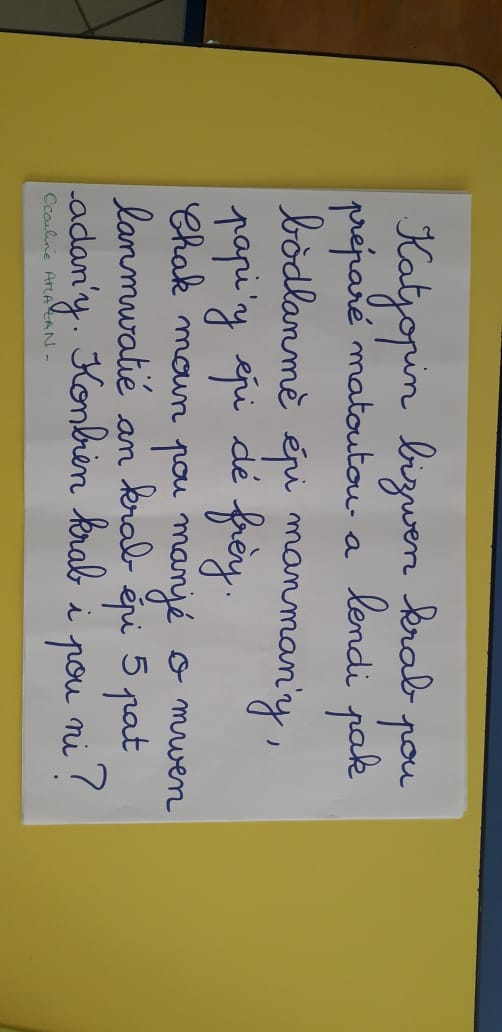 Katyopin bizwen krab pou
préparé matoutou a lendi pak
bòdlanmè épi manman'y,
papi'y épi dé frèy.
Chak moun pou manjé o mwen
lanmwatié an krab épi 5 pat
adan'y. Konbien krab i pou ni ?